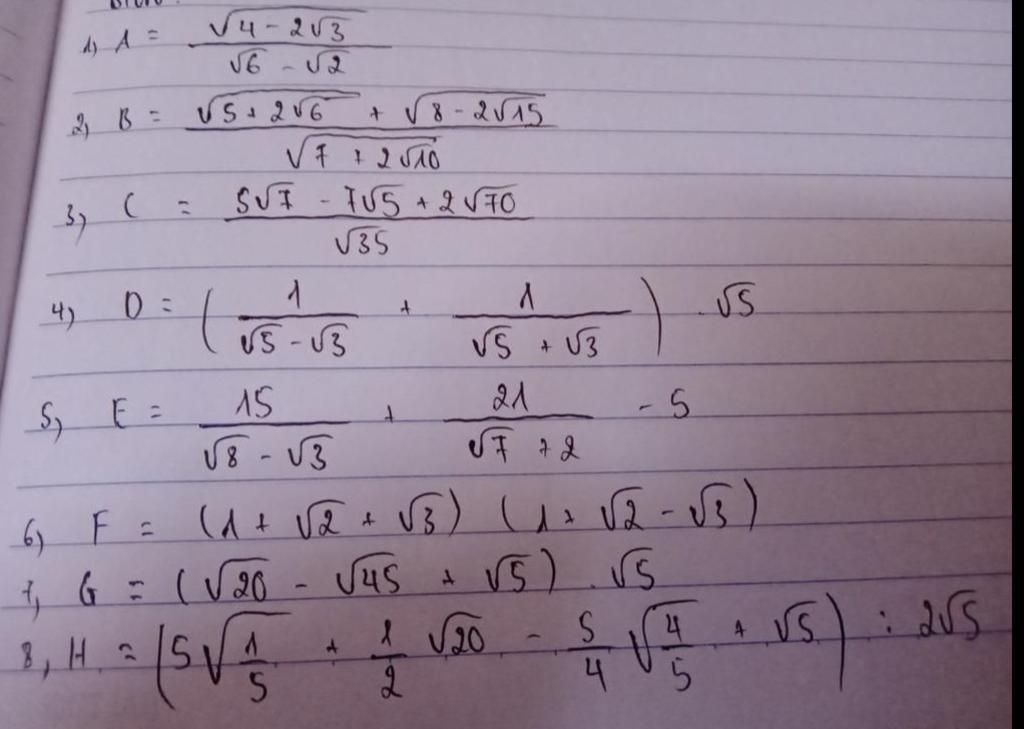 1) A = \frac{\sqrt{4-2\sqrt{3}}}{\sqrt{6}-\sqrt{2}}
2) B = \frac{\sqrt{5+2\sqrt{6}} + \sqrt{8-2\sqrt{15}}}{\sqrt{7+2\sqrt{10}}}
3) C = \frac{5\sqrt{7} - 7\sqrt{5} + 2\sqrt{70}}{\sqrt{35}}
4) D = \left(\frac{1}{\sqrt{5}-\sqrt{3}} + \frac{1}{\sqrt{5}+\sqrt{3}}\right) . \sqrt{5}
5) E = \frac{15}{\sqrt{8}-\sqrt{3}} + \frac{21}{\sqrt{7}+2} - 5
6) F = (1 + \sqrt{2} + \sqrt{3}) (1 + \sqrt{2} - \sqrt{3})
7) G = (\sqrt{20} - \sqrt{45} + \sqrt{5}) . \sqrt{5}
8) H = \left(5\sqrt{\frac{1}{5}} + \frac{1}{2}\sqrt{20} - \frac{5}{4}\sqrt{\frac{4}{5}} + \sqrt{5}\right) : 2\sqrt{5}